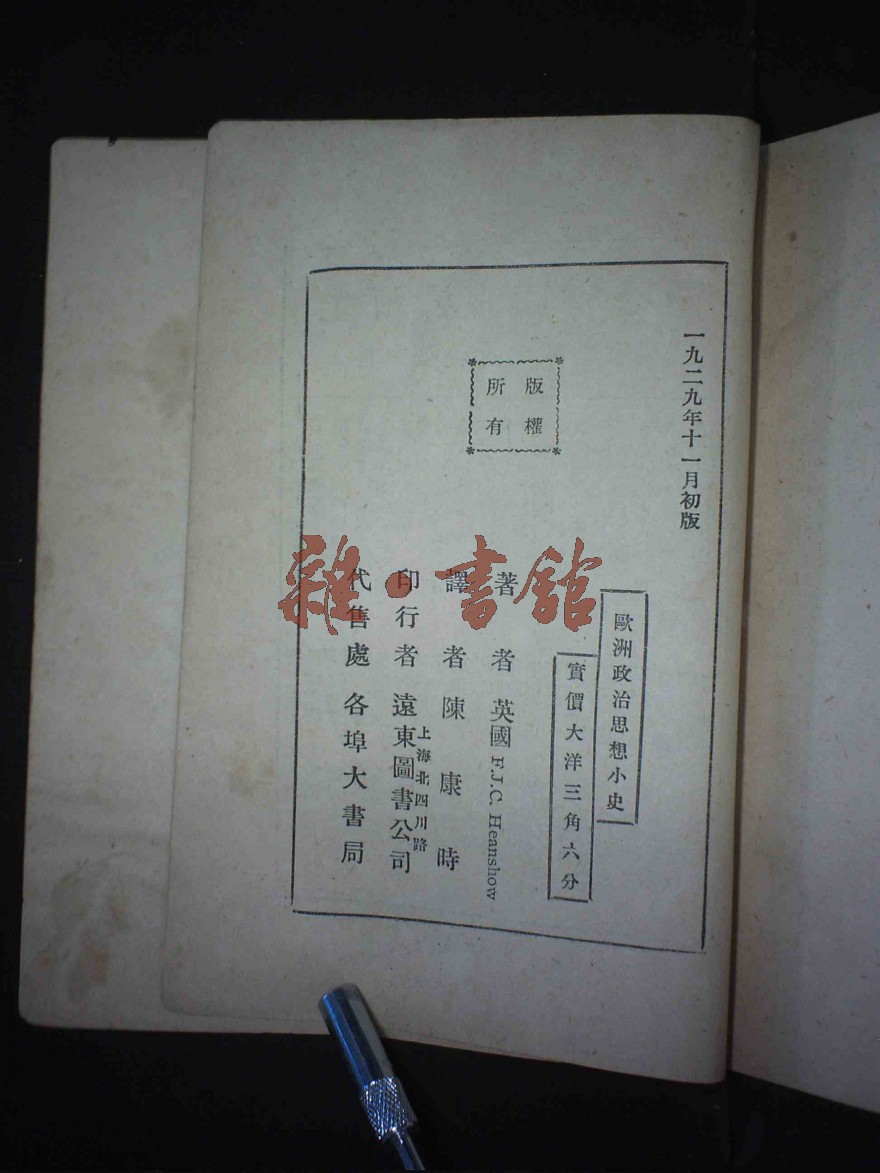 一九二九年十一月初版
歐洲政治思想小史
實價大洋三角六分
版權
所有
著者 英國F.J.C. Heanshow
譯者 陳康時
上海北四川路
印行者 遠東圖書公司
代售處 各埠大書局
雜·書館